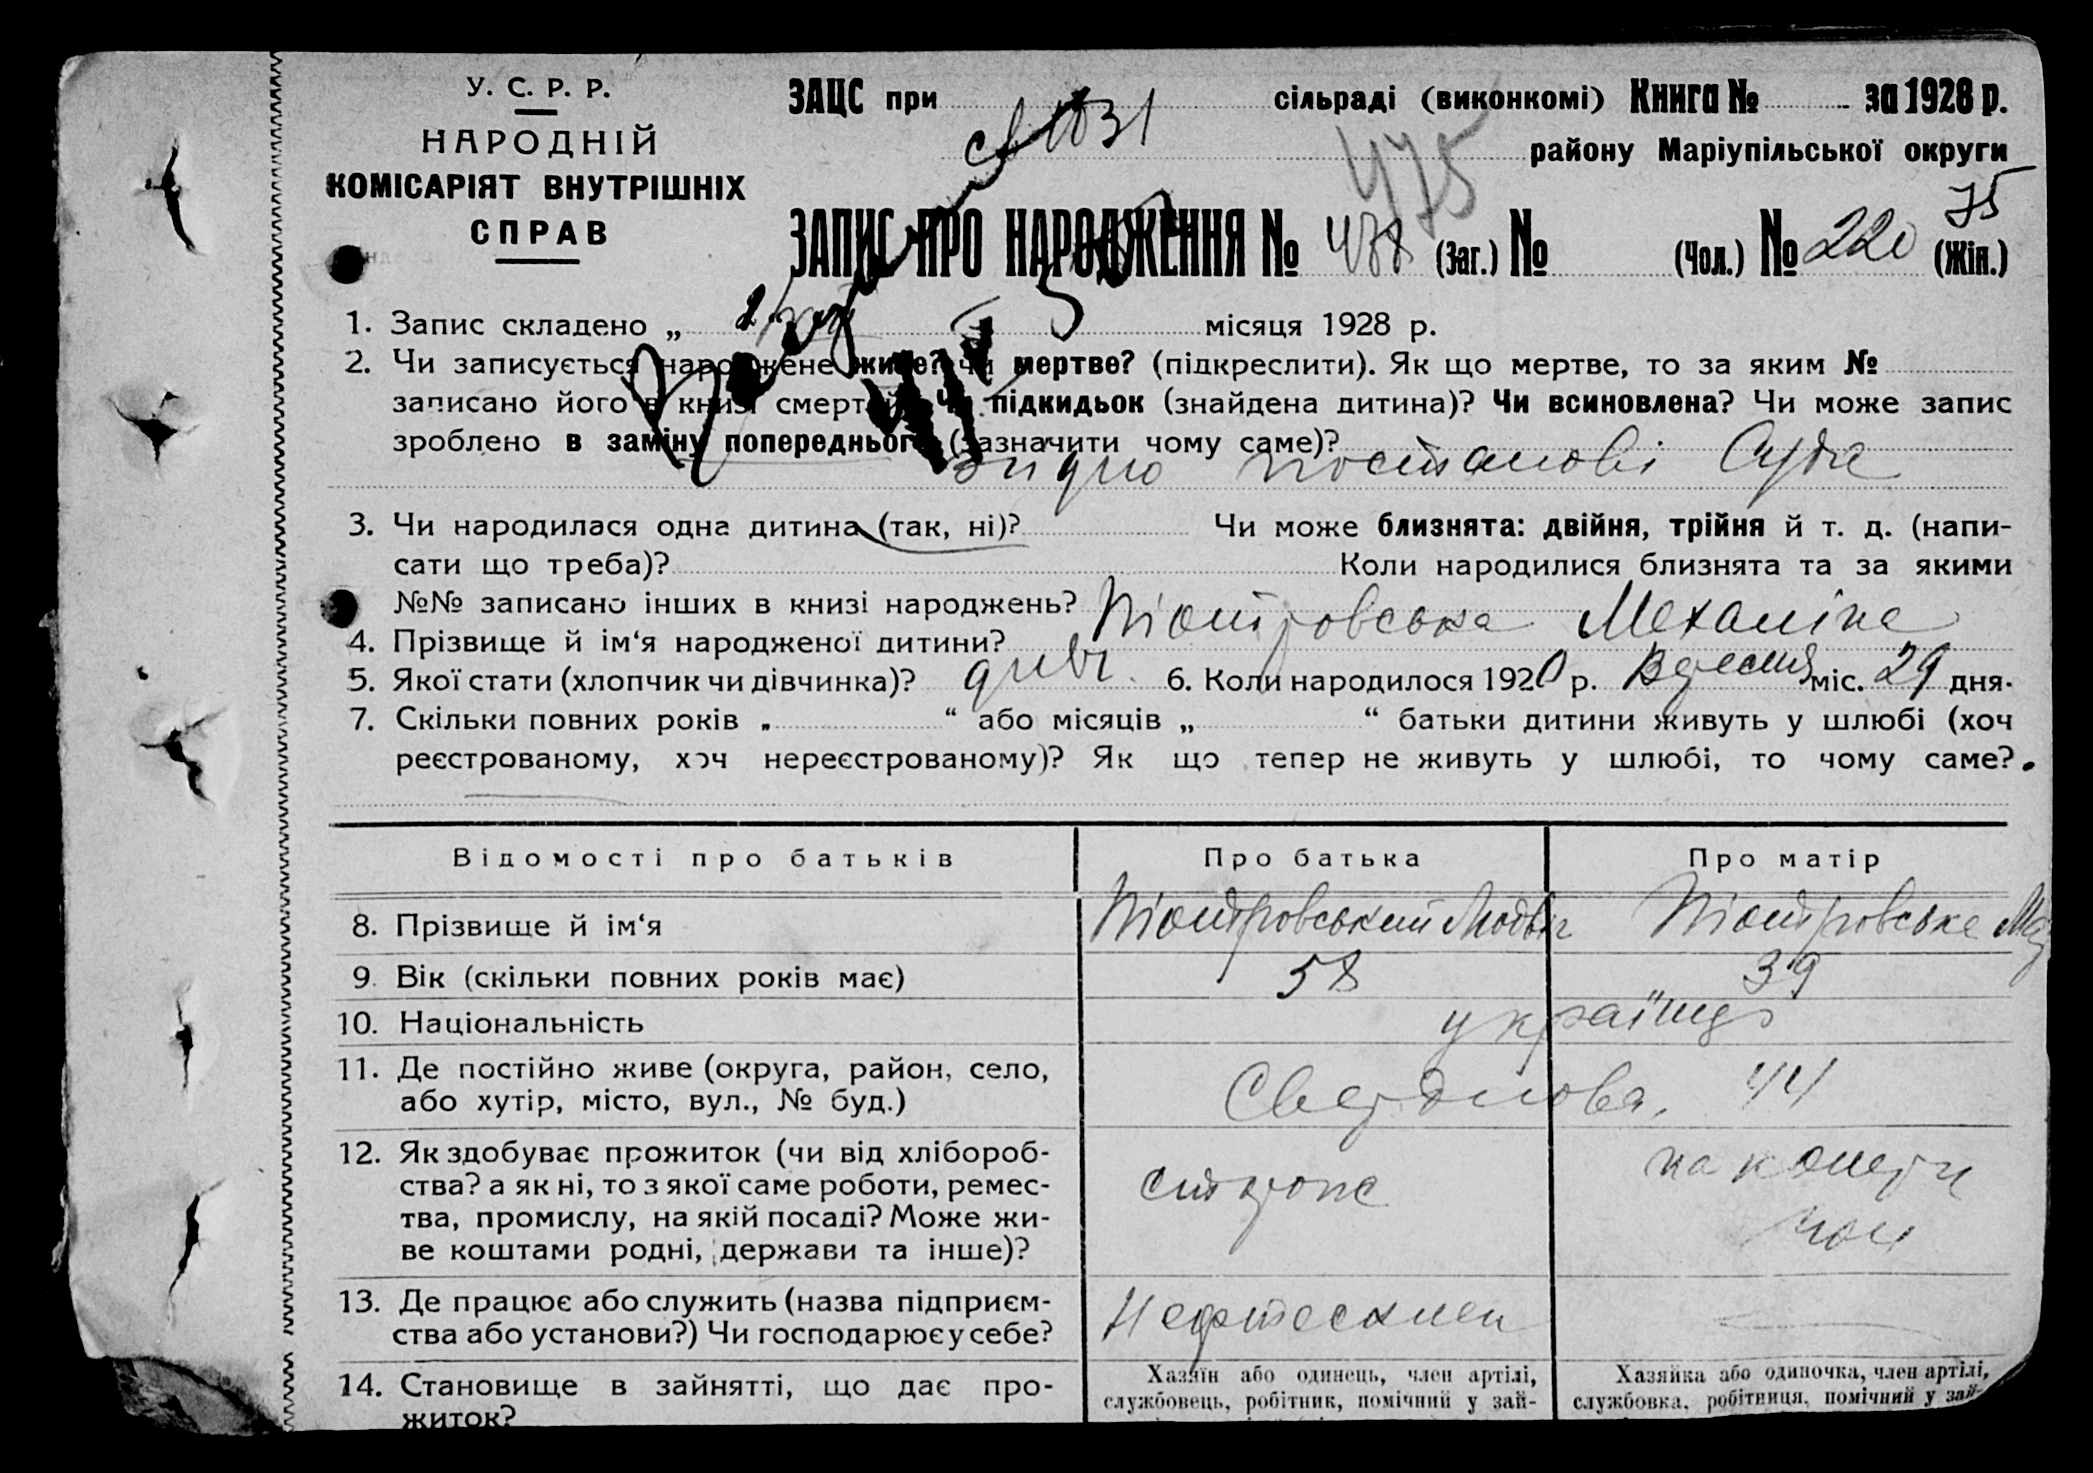 У. С. Р. Р.
НАРОДНІЙ
КОМІСАРІЯТ ВНУТРІШНІХ
СПРАВ
ЗАЦС при сільраді (виконкомі) Книга № за 1928 р.
475 району Маріупільської округи
75
ЗАПИС ПРО НАРОДЖЕННЯ № 478 (Заг.) № (Чол.) № 220 (Жін.)
1. Запис складено „ місяця 1928 р.
2. Чи записується народжене живе? чи мертве? (підкреслити). Як що мертве, то за яким №
записано його в книзі смертей? Чи підкидьок (знайдена дитина)? Чи всиновлена? Чи може запис
зроблено в заміну попереднього (зазначити чому саме)?
Згидно постанові Суда
3. Чи народилася одна дитина (так, ні)? Чи може близнята: двійня, трійня й т. д. (напи-
сати що треба)? Коли народилися близнята та за якими
№№ записано інших в книзі народжень?
4. Прізвище й ім‘я народженої дитини? Піотровська Механіна
5. Якої стати (хлопчик чи дівчинка)? дивч. 6. Коли народилося 1920 р. Вересня міс. 29 дня.
7. Скільки повних років „ “ або місяців „ “ батьки дитини живуть у шлюбі (хоч
реєстрованому, хоч нереєстрованому)? Як що тепер не живуть у шлюбі, то чому саме?
Відомості про батьків Про батька Про матір
8. Прізвище й ім‘я Піотровський Людвіг Піотровська
9. Вік (скільки повних років має) 58 39
10. Національність українці
11. Де постійно живе (округа, район, село,
або хутір, місто, вул., № буд.) Свердлова, 44
12. Як здобуває прожиток (чи від хлібороб-
ства? а як ні, то з якої саме роботи, ремес-
тва, промислу, на якій посаді? Може жи-
ве коштами родні, держави та інше)?
сторож
13. Де працює або служить (назва підприєм-
ства або установи?) Чи господарює у себе? Нефтесклад
14. Становище в зайнятті, що дає про-
житок?
Хазяїн або одинець, член артілі,
службовець, робітник, помічний у зай-
Хазяйка або одиночка, член артілі,
службовка, робітниця, помічний у зай-